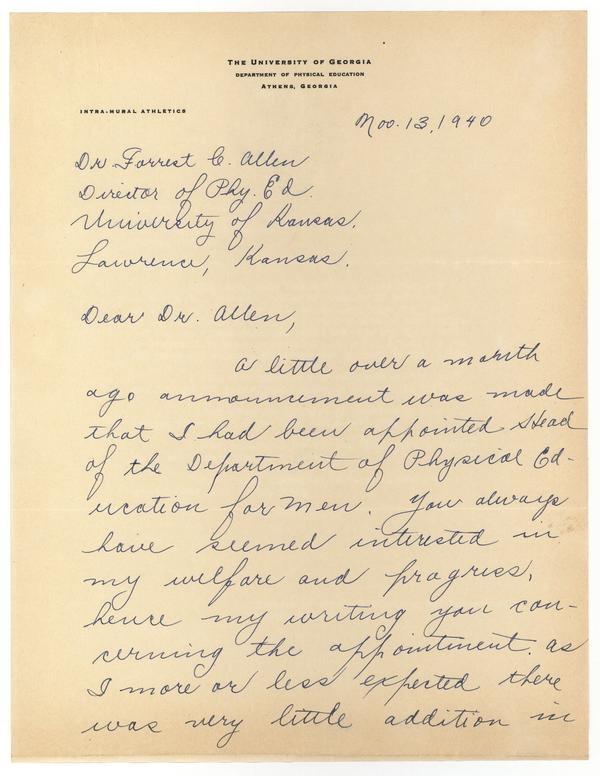 THE UNIVERSITY OF GEORGIA
DEPARTMENT OF PHYSICAL EDUCATION
ATHENS, GEORGIA
INTRA-MURAL ATHLETICS
Nov. 13, 1940
Dr. Forrest C. Allen
Director of Phy. Ed.
University of Kansas.
Lawrence, Kansas.
Dear Dr. Allen,
A little over a month
ago announcement was made
that I had been appointed Head
of the Department of Physical Ed-
ucation for Men. You always
have seemed interested in
my welfare and progress,
hence my writing you con-
cerning the appointment. As
I more or less expected there
was very little addition in